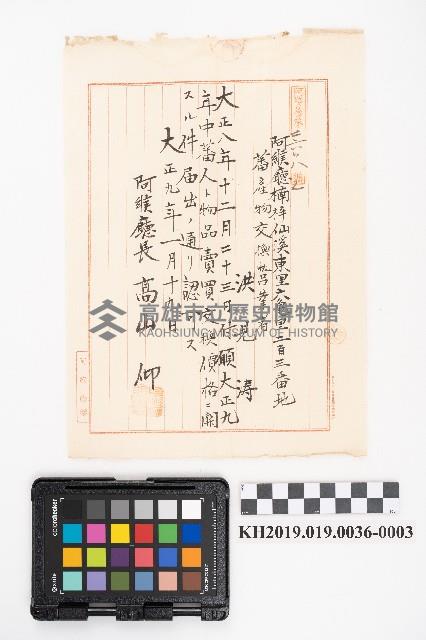 阿緱廳楠梓仙溪東里六龜里二百三番地
蕃產物交換營業者
洪見濤
大正八年十二月二十三日付願大正九
年中蕃人ト物品賣買交換價格ニ關
スル件届出ノ通リ認可ス
大正九年一月十九日
阿緱廳長 高山 仰
高雄市立歷史博物館
KAOHSIUNG MUSEUM OF HISTORY
colorchecker
x-rite
KH2019.019.0036-0003